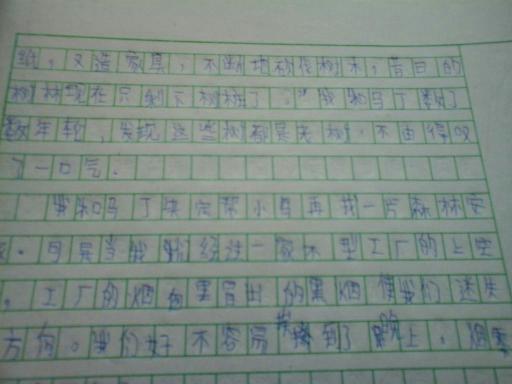 纸，又造家具，不断地砍伐树木，昔日的
树林现在只剩下树桩了。"我和马丁数了
数年轮，发现这些树都是老树，不由得叹
了一口气。
我和马丁决定帮小鸟再找一片森林安
。可是当我们经过一家大型工厂的上空
，工厂的烟囱里冒出的黑烟使我们迷失
方向。我们好不容易找到了晚上，烟